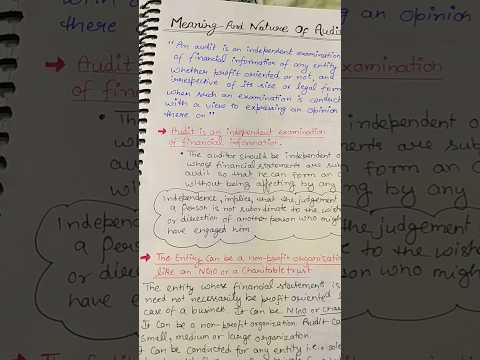 Meaning And Nature Of Audi
"An audit is an independent examination
of financial information of any entity
whether profit oriented or not, and
irrespective of its size or legal form
when such an examination is conduct
with a view to expressing an opinion
there on"
→ Audit is an independent examination
of financial information.
• The auditor should be independent o
whose financial statements are sub
audit so that he can form an o
without being affecting by any
Independence, implies, that the judgement
a person is not subordinate to the wish
or direction of another person who might
have engaged him
→ The Entity Can be a non-profit organisatio
like an NGO or a Charitable trust
The entity whose financial statement is
need not necessarily be profit oriented
case of a busines. It can be NGO or Cha
It can be a non-profit organization Audit ca
small, medium or large organization.
t can be conducted for any entity i.e. sole